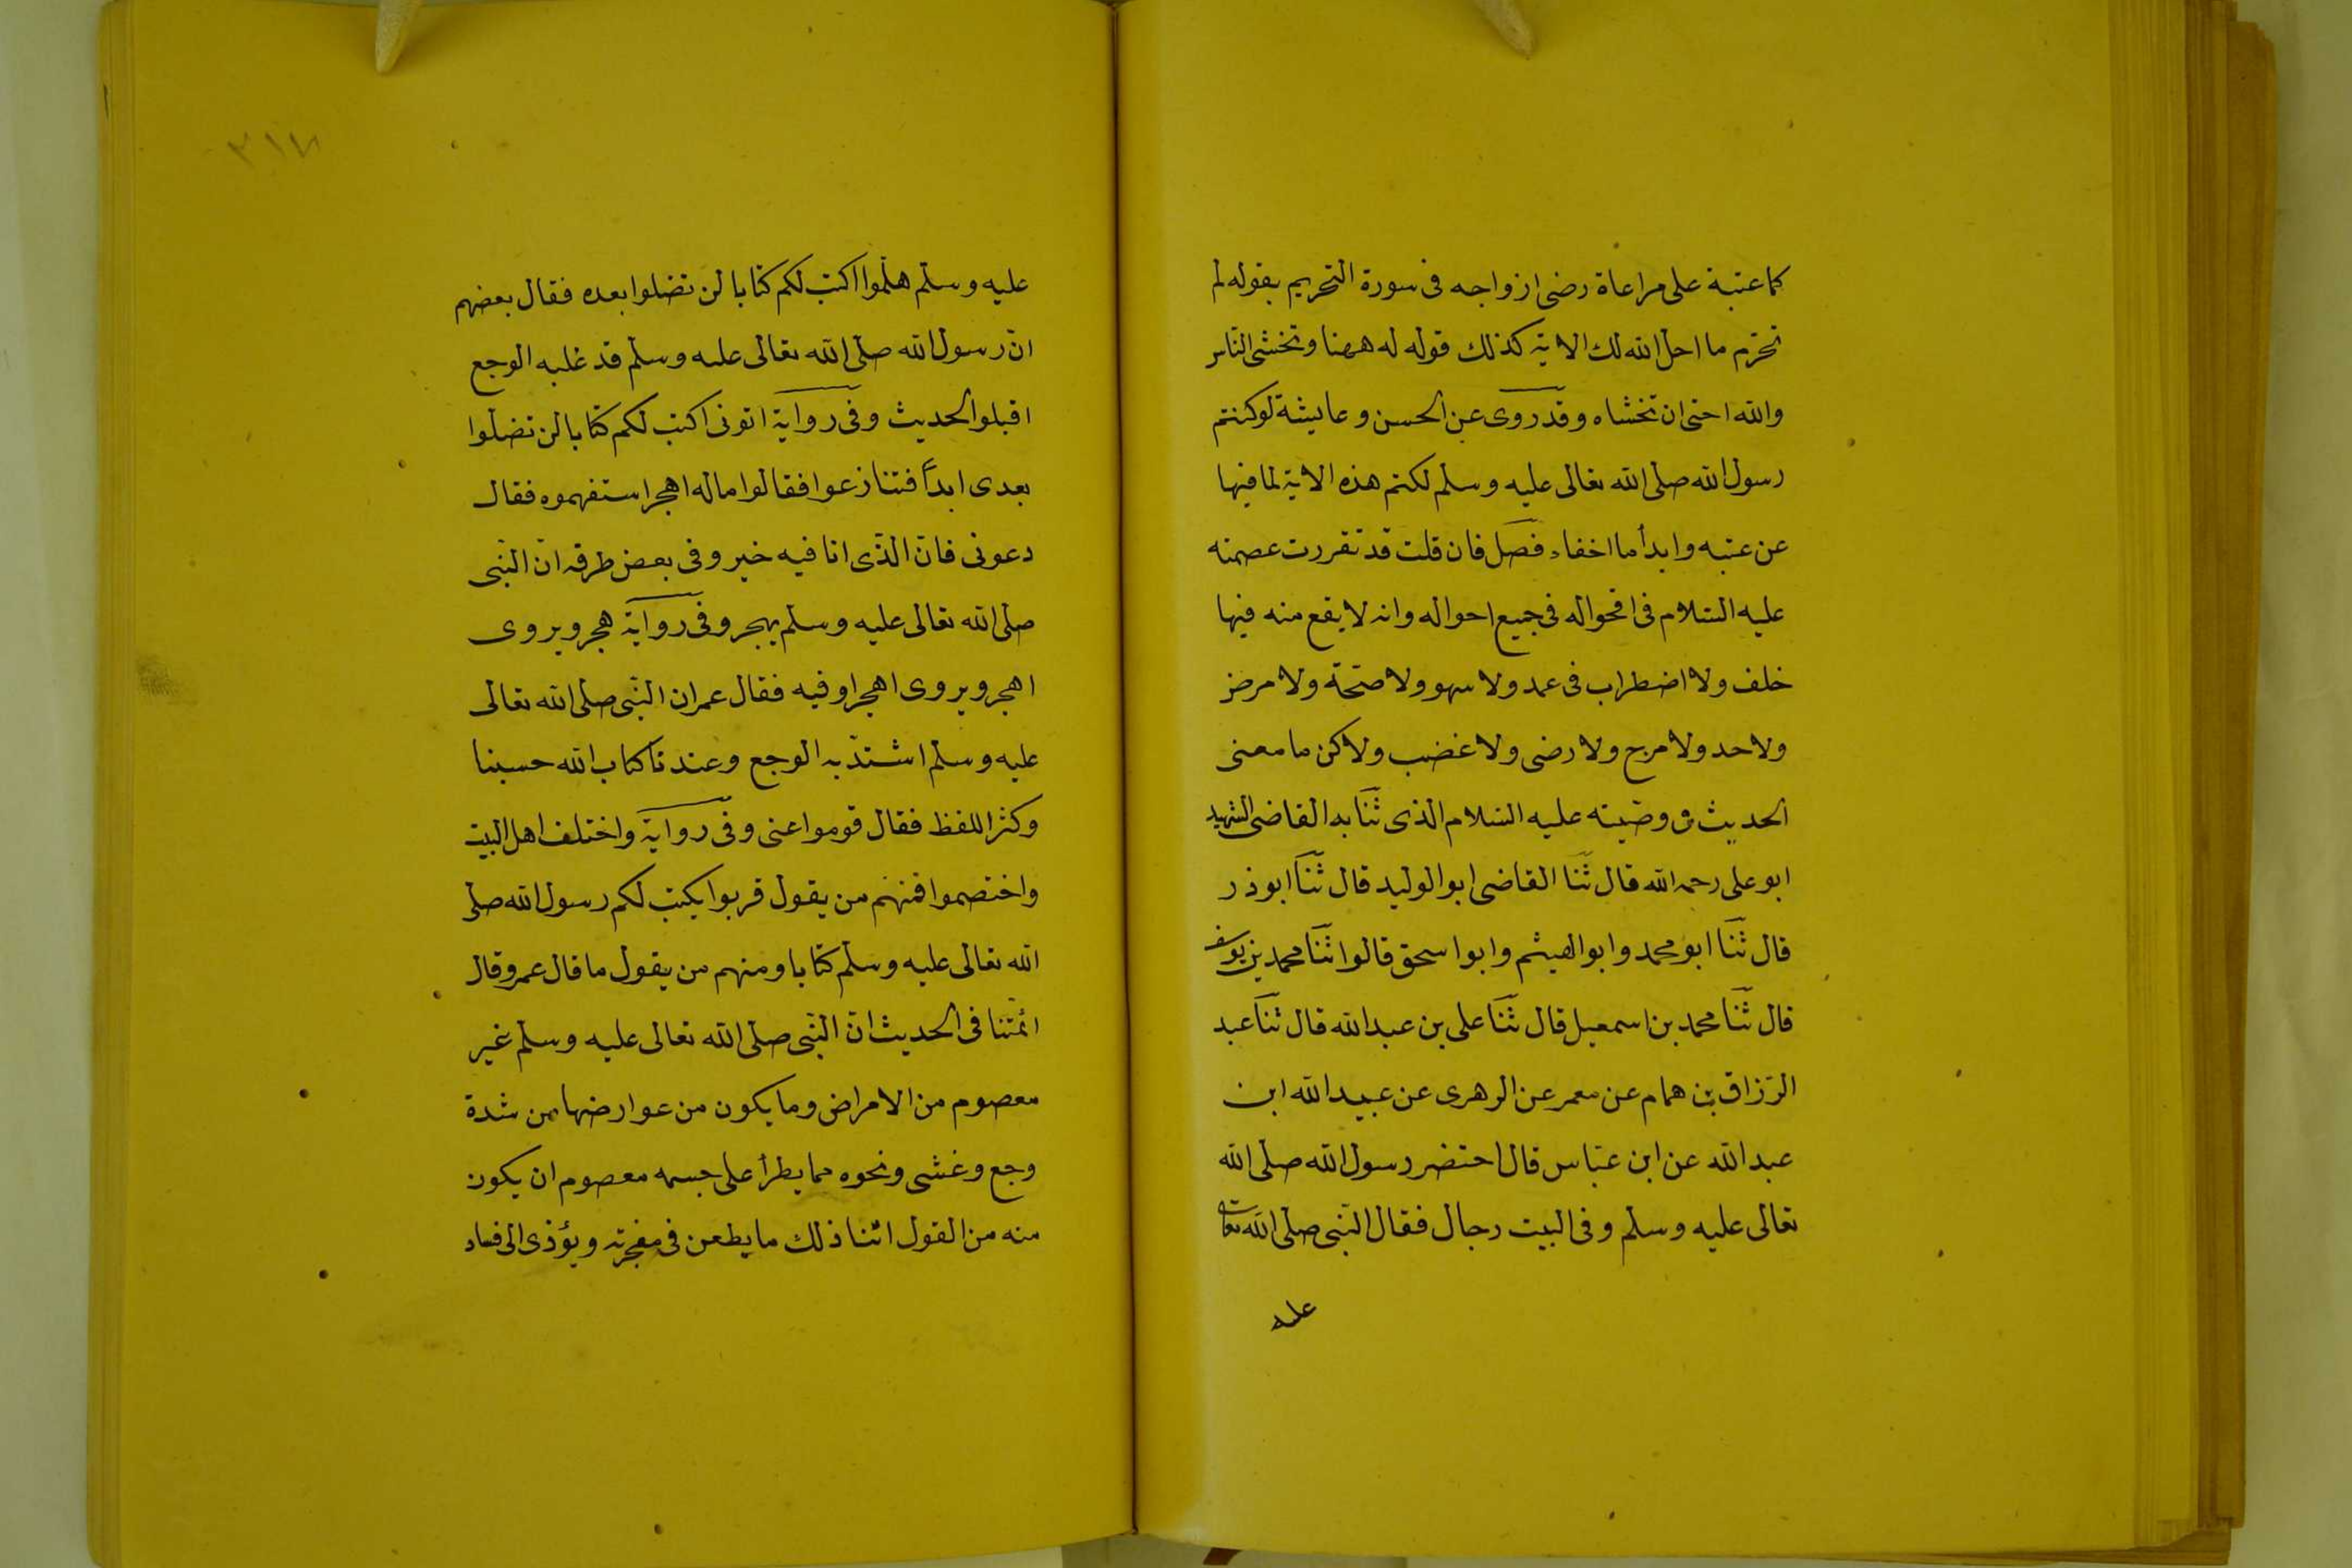 كما عتبة على مراعاة رضى ازواجه فى سورة التحريم بقوله لم
تحرّم ما احل الله لك الاية كذلك قوله له ههنا وتخشى الناس
والله احق ان تخشاه وقد روى عن الحسن وعايشة لو كنتم
رسول الله صلى الله تعالى عليه وسلم لكتم هذه الاية لما فيها
عن عتبه وابدأ ما اخفاء فصل فان قلت قد تقررت عصمته
عليه السلام فى اقحواله فى جميع احواله وانه لا يقع منه فيها
خلف ولا اضطراب فى عمد ولا سهو ولا صحّة ولا مرض
ولا حد ولا مرح ولا رضى ولا غضب ولاكن ما معنى
الحديث فى وصّيته عليه السلام الذى ثنا به القاضى الشهيد
ابو على رحمه الله قال ثنا القاضى ابو الوليد قال ثنا ابو ذر
قال ثنا ابو محمد وابو الهيثم وابوا سحق قالوا ثنا محمد بن يوسف
قال ثنا محمد بن اسمعيل قال ثنا على بن عبد الله قال ثنا عبد
الرّزاق بن همام عن معمر عن الزهرى عن عبيد الله ابن
عبد الله عن ابن عبّاس قال احتضر رسول الله صلى الله
تعالى عليه وسلم وفى البيت رجال فقال النبى صلى الله تعالى
عليه
٣١٧
عليه وسلم هلّموا اكتب لكم كتابا لن تضلوا بعده فقال بعضهم
انّ رسول الله صلى الله تعالى عليه وسلم قد غلبه الوجع
اقبلوا الحديث وفى رواية اتونى اكتب لكم كتابا لن تضلوا
بعدى ابدًا فتنازعوا فقالوا ماله اهجر استفهموه فقال
دعونى فانّ الّذى انا فيه خير وفى بعض طرقه انّ النّبى
صلى الله تعالى عليه وسلم يهجر وفى رواية هجر ويروى
اهجر ويروى اهجرا وفيه فقال عمر ان النّبى صلى الله تعالى
عليه وسلم اشتدّ به الوجع وعندنا كتاب الله حسبنا
وكثر اللفظ فقال قوموا عنى وفى رواية واختلف اهل البيت
واختصموا فمنهم من يقول قربوا يكتب لكم رسول الله صلى
الله تعالى عليه وسلم كتابا ومنهم من يقول ما قال عمر وقال
ائمّتنا فى الحديث انّ النّبى صلى الله تعالى عليه وسلم غير
معصوم من الامراض وما يكون من عوارضها من شدة
وجع وغشى ونحوه مما يطرأ على جسمه معصوم ان يكون
منه من القول اثنا ذلك ما يطعن فى مفجرته ويؤذى الى فساد